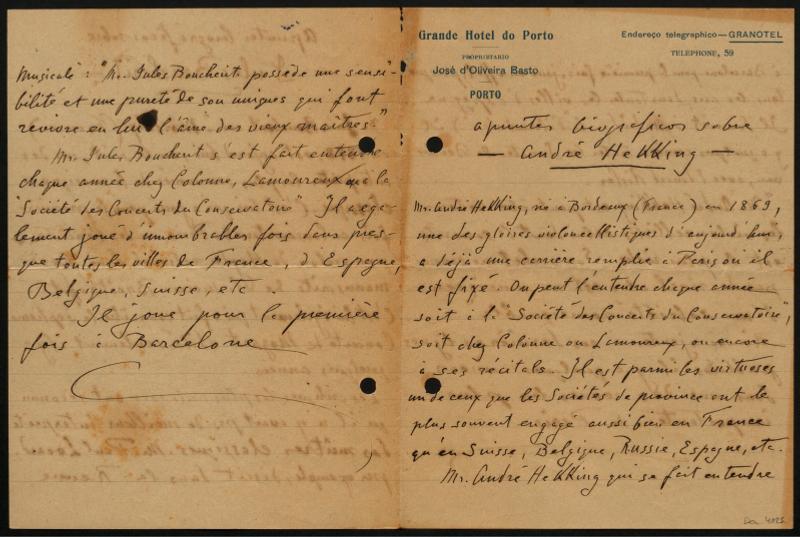 musicale: "Mr. Jules Boucherit possède une sensi-
bilité et une pureté de son uniques qui font
revivre en lui l'âme des vieux maîtres."
Mr. Jules Boucherit s'est fait entendre
chaque année chez Colonne, Lamoureux, que la
"Société des Concerts du Conservatoire" Il a éga-
lement joué d'innombrables fois dans pres-
que toutes les villes de France, d'Espagne,
Belgique, Suisse, etc.
Il joue pour la première
fois à Barcelone
Grande Hotel do Porto
PROPRIETARIO
José d'Oliveira Basto
PORTO
Endereço telegraphico — GRANOTEL
TELEPHONE, 59
apuntes biograficos sobre
— André Hekking —
Mr. André Hekking, né à Bordeaux (France) en 1869,
une des gloires violoncellistiques d'aujourd'hui,
a déjà une carrière remplie à Paris où il
est fixé. On peut l'entendre chaque année
soit à la "Société des Concerts du Conservatoire",
soit chez Colonne ou Lamoureux, ou encore
à ses récitals. Il est parmi les virtuoses
un de ceux que les Sociétés de province ont le
plus souvent engagé aussi bien en France
qu'en Suisse, Belgique, Russie, Espagne, etc.
Mr. André Hekking qui se fait entendre